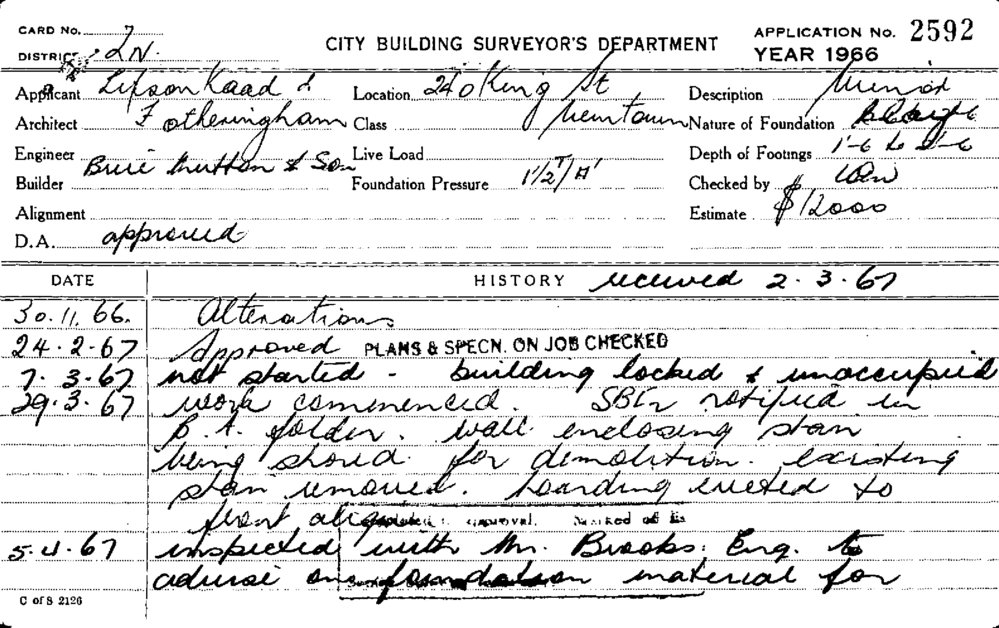 CARD No. 7
DISTRICT 2N.
CITY BUILDING SURVEYOR'S DEPARTMENT
APPLICATION No. 2592
YEAR 1966
Applicant Lipson Kaad &
Location 240 King St
Description Minor
Architect Fotheringham
Class Newtown
Nature of Foundation
Engineer
Live Load
Depth of Footings 1'-6 to 2'-6
Builder Hutton & Son
Foundation Pressure 1 1/2 T/□'
Checked by
Alignment
Estimate $12000
D.A. approved
DATE
HISTORY received 2.3.67
30.11.66. Alterations
24.2.67 Approved PLANS & SPECN. ON JOB CHECKED
7.3.67 not started - building locked & unoccupied
29.3.67 work commenced. notified in
B.A. folder. wall enclosing stair
being shored for demolition. existing
stair removed. hoarding erected to
front
5.4.67 inspected with Mr. Brooks. Eng. to
advise on foundation material for
C of S 2126